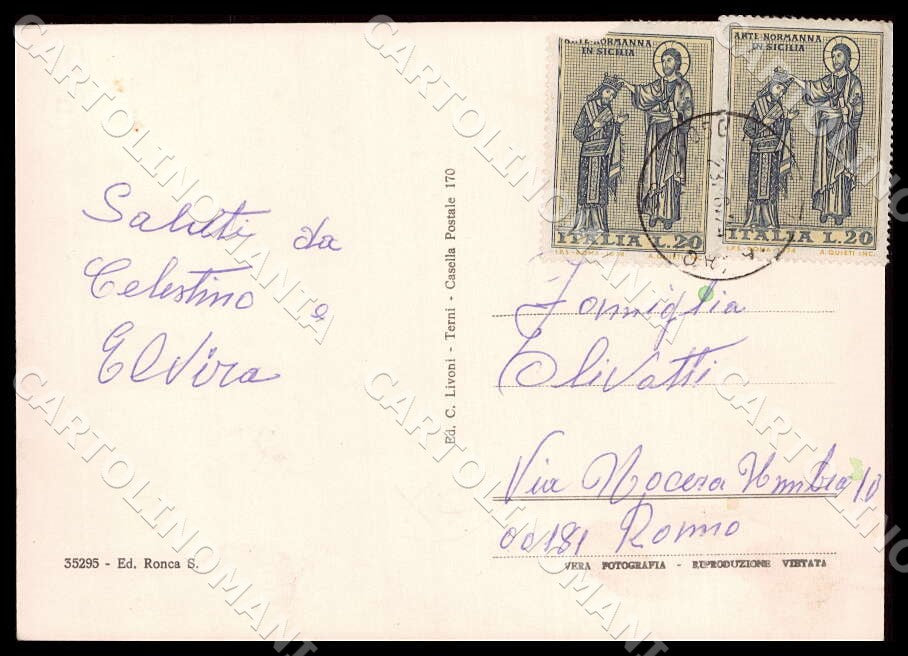 Saluti da
Celestino e
Elvira
35295 - Ed. Ronca S.
Ed. C. Livoni - Terni - Casella Postale 170
ARTE NORMANNA
IN SICILIA
ITALIA L.20
ARTE NORMANNA
IN SICILIA
ITALIA L.20
A. QUIETI INC.
Famiglia
Olivatti
Via Nocera Umbra 10
00181 Roma
VERA FOTOGRAFIA - RIPRODUZIONE VIETATA
CARTOLINOMANIA